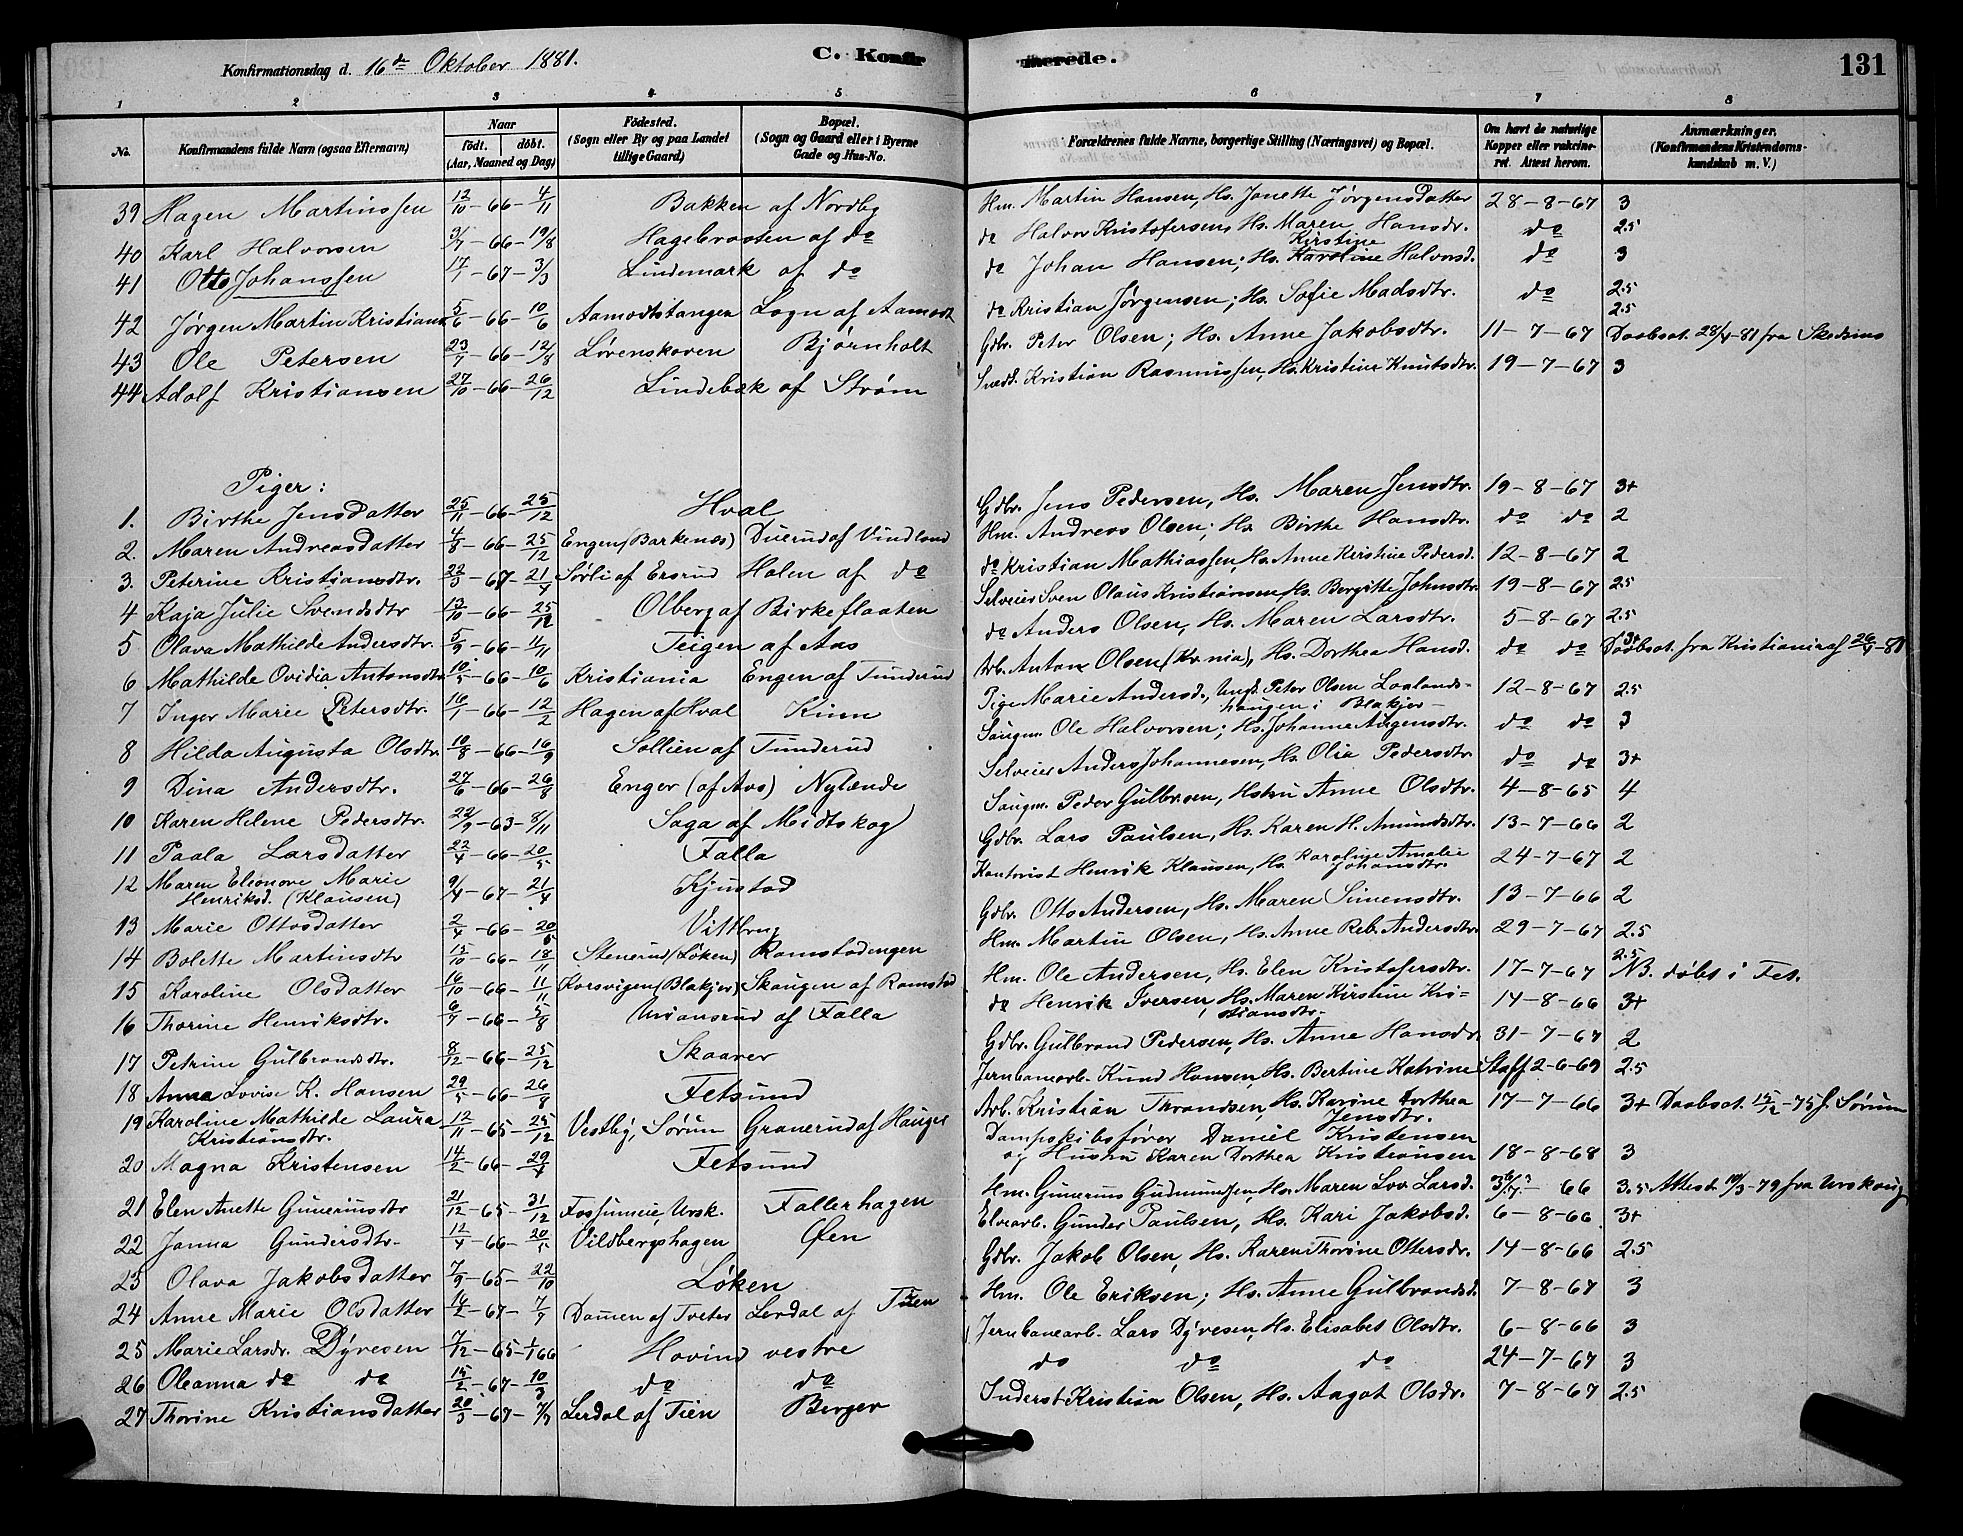 Konfirmationsdag d. 16de Oktober 1881. C. Konfirmerede. 131
1 2 3 4 5 6 7 8
No. Konfirmandens fulde Navn (ogsaa Efternavn) Naar födt. döbt. (Aar, Maaned og Dag) Födested. (Sogn eller By og paa Landet tillige Gaard) Bopæl. (Sogn og Gaard eller i Byerne Gade og Hus-No. Forældrenes fulde Navne, borgerlige Stilling (Næringsvei) og Bopæl. Om havt de naturlige Kopper eller vaccineret. Attest herom. Anmærkninger. (Konfirmandens Kristendomskundskab m. V.)
39 Hagen Martinssen 12/10-66-4/11 Bakken af Nordby Hm. Martin Hansen, Hs. Janette Jørgensdatter 28-8-67 3
40 Karl Halvorsen 3/7-66-19/8 Hagebraaten af do do Halvor Kristofersen, Hs. Maren Hansdr. do 2.5
41 Otto Johanssen 17/1-67-3/3 Lindemark af do do Johan Hansen; Hs. Karoline Kirstine Halvorsd. do 3
42 Jørgen Martin Kristians. 5/6-66-10/6 Aamodtstangen Logn af Aamodt do Kristian Jørgensen; Hs. Sofie Madsdtr. do 2.5
43 Ole Petersen 23/7-66-12/8 Løvenskoven Bjørnholt Gdbr. Peter Olsen; Hs. Anne Jakobsdtr. 11-7-67 2.5 Daabsat. 28/4-81 fra Skedsmo
44 Adolf Kristiansen 27/10-66-26/12 Lindebæk af Strøm Snedk. Kristian Rasmussen, Hs. Kristine Knutsdtr. 19-7-67 3
Piger:
1. Birthe Jensdatter 25/11-66-25/12 Hval Gdbr. Jens Pedersen, Hs. Maren Jensdtr. 19-8-67 3+
2. Maren Andreasdatter 4/8-66-25/12 Engen (Barkenæs) Duerud af Vindland Hm. Andreas Olsen; Hs. Birthe Hansdtr. do do 2
3. Peterine Kristiansdtr. 22/3-67-21/4 Sørli af Ersrud Holen af do do Kristian Mathiassen, Hs. Anne Kirstine Pedersd. 12-8-67 2
4 Kaja Julie Svendsdtr 13/10-66-25/12 Olberg af Birkeflaaten Selveier Sven Olaus Kristiansen, Hs. Bergitte Johnsdtr. 19-8-67 2.5
5 Olava Mathilde Andersdtr. 5/9-66-11/11 Teigen af Aas do Anders Olsen, Hs. Maren Larsdtr. 5-8-67 2.5
6 Mathilde Ovidia Antonsdtr 10/5-66-10/6 Kristiania Engen af Tunderud Arb. Anton Olsen (Kr.nia), Hs. Dorthea Hansd. do do 3+ Daabsat. fra Kristiania af 26/4-81
7 Inger Marie Petersdtr. 16/1-66-12/2 Hagen af Hval Kinn Pige Marie Andersd., Ungk. Peter Olsen Laalandshaugen i Blakjer 12-8-67 2.5
8 Hilda Augusta Olsdtr. 10/8-66-16/9 Sollien af Tunderud Saugm. Ole Halvorsen; Hs. Johanne Augensdtr. do do 3
9 Dina Andersdtr. 27/6-66-26/8 Enger (af Aas) Nylænde Selveier Anders Johannesen, Hs. Olia Pedersdtr. do do 3+
10 Karen Helene Pedersdtr. 22/9-63-8/11 Saga af Midtskog Saugm. Peder Gulbrsen, Hustru Anne Olsdtr. 4-8-65 4
11 Paala Larsdatter 22/4-66-20/5 Falla Gdbr. Lars Paulsen, Hs. Karen H. Amundsdtr. 13-7-66 2
12 Maren Eleonore Marie Henriksd. (Klausen) 9/4-67-21/4 Kjustad Kontorist Henrik Klausen, Hs. Karoline Amalie Johansdtr. 24-7-67 2
13 Marie Ottosdatter 2/4-66-20/5 Vittbry Gdbr. Otto Andersen, Hs. Maren Simensdtr. 13-7-66 2
14 Bolette Martinsdtr 15/10-66-18/11 Stenerud (Løken) Ramstadengen Hm. Martin Olsen, Hs. Anne Reb. Andersdtr. 29-7-67 2.5
15 Karoline Olsdatter 16/10-66-11/11 Korsvigen (Blakjer) Skaugen af Ramstad Hm. Ole Andersen, Hs. Elen Kristofersdtr. 17-7-67 2.5 NB. døbt i Fet.
16 Thorine Henriksdtr. 6/7-66-5/8 Uriansrud af Falla do Henrik Iversen, Hs. Maren Kirstine Kristiansdtr. 14-8-66 3+
17 Petrine Gulbrandsdtr. 8/12-66-25/12 Skaarer Gdbr. Gulbrand Pedersen, Hs. Anne Hansdr. 31-7-67 2
18 Anna Lovise K. Hansen 29/5-66-26/8 Fetsund Jernbanearb. Knud Hansen, Hs. Bertine Katrine Staff 2-6-69 2.5
19 Karoline Mathilde Laura Kristiansdtr. 12/11-65-25/12 Vestby, Sørum Granerud af Hauger Arb. Kristian Throndsen, Hs. Karine Dorthea Jensdtr. 17-7-66 3+ Daabsat. 15/12-75 f. Sørum
20 Magna Kristensen 14/2-66-29/4 Fetsund Dampskibsfører Daniel Kristensen og Hustru Karen Dorthea Kristiansen 18-8-68 3
21 Elen Anette Guneriusdtr 21/12-65-31/12 Fossumeie, Ursk. Fallerhagen Hm. Gunerius Gudmundsen, Hs. Maren Lov. Larsd. 66 3.5 Attest 10/3-79 fra Urskoug
22 Janna Gundersdtr. 12/4-66-20/5 Vildbergshagen Øen Elvearb. Gunder Paulsen, Hs. Kari Jakobsd. 6-8-66 3+
23 Olava Jakobsdatter 7/9-65-22/10 Løken Gdbr. Jakob Olsen, Hs. Karen Thorine Ottersdr. 14-8-66 2.5
24 Anne Marie Olsdatter 14/2-67-7/7 Damen af Tveter Lerdal af Tien Hm. Ole Eriksen; Hs. Anne Gulbrandsd. 7-8-67 3
25 Marie Larsdr. Dyresen 7/12-65-1/1 66 Hovind vestre Jernbanearb. Lars Dyresen, Hs. Elisabet Olsdtr. 6-8-66 3
26 Oleanna do do 15/2-67-10/3 do do do do do 24-7-67 3
27 Thorine Kristiansdatter 20/3-67-7/7 Lerdal af Tien Berger Inderst Kristian Olsen, Hs. Aagot Olsdr. 7-8-67 2.5